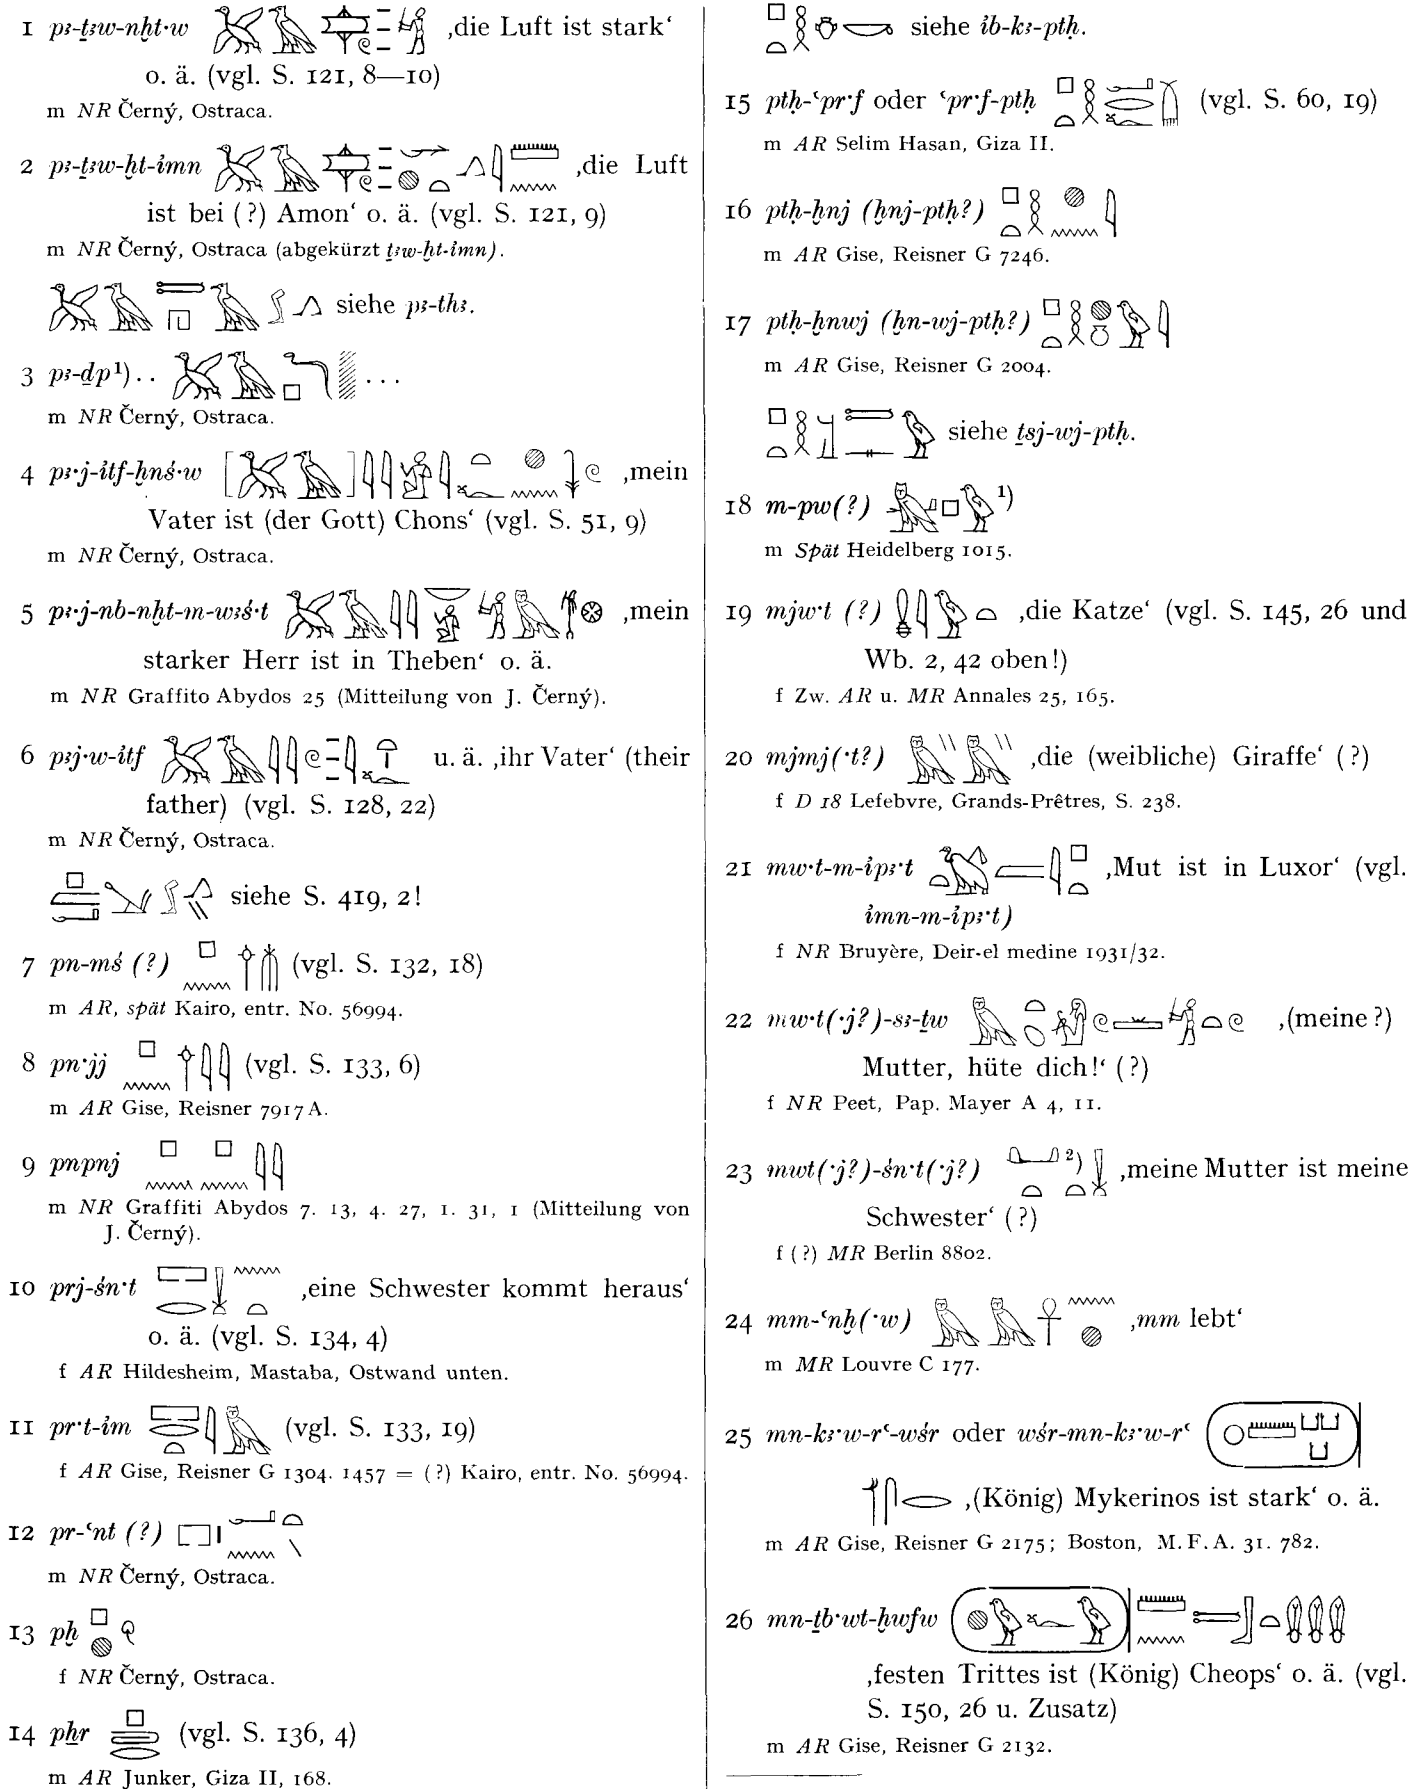 1 pꜣ-ṯꜣw-nḫt·w ‚die Luft ist stark‘
o. ä. (vgl. S. 121, 8—10)
m NR Černý, Ostraca.
2 pꜣ-ṯꜣw-ḫt-ỉmn ‚die Luft
ist bei (?) Amon‘ o. ä. (vgl. S. 121, 9)
m NR Černý, Ostraca (abgekürzt ṯꜣw-ḫt-ỉmn).
siehe pꜣ-thꜣ.
3 pꜣ-ḏp¹) . . . . .
m NR Černý, Ostraca.
4 pꜣ·j-ỉtf-ḫnś·w [ ] ‚mein
Vater ist (der Gott) Chons‘ (vgl. S. 51, 9)
m NR Černý, Ostraca.
5 pꜣ·j-nb-nḫt-m-wꜣś·t ‚mein
starker Herr ist in Theben‘ o. ä.
m NR Graffito Abydos 25 (Mitteilung von J. Černý).
6 pꜣj·w-ỉtf u. ä. ‚ihr Vater‘ (their
father) (vgl. S. 128, 22)
m NR Černý, Ostraca.
siehe S. 419, 2!
7 pn-mś (?) (vgl. S. 132, 18)
m AR, spät Kairo, entr. No. 56994.
8 pn·jj (vgl. S. 133, 6)
m AR Gise, Reisner 7917 A.
9 pnpnj
m NR Graffiti Abydos 7. 13, 4. 27, 1. 31, 1 (Mitteilung von
J. Černý).
10 prj-śn·t ‚eine Schwester kommt heraus‘
o. ä. (vgl. S. 134, 4)
f AR Hildesheim, Mastaba, Ostwand unten.
11 pr·t-ỉm (vgl. S. 133, 19)
f AR Gise, Reisner G 1304. 1457 = (?) Kairo, entr. No. 56994.
12 pr-ꜥnt (?)
m NR Černý, Ostraca.
13 pḫ
f NR Černý, Ostraca.
14 pẖr (vgl. S. 136, 4)
m AR Junker, Giza II, 168.
siehe ỉb-kꜣ-ptḥ.
15 ptḥ-ꜥpr·f oder ꜥpr·f-ptḥ (vgl. S. 60, 19)
m AR Selim Hasan, Giza II.
16 ptḥ-ḫnj (ḫnj-ptḥ?)
m AR Gise, Reisner G 7246.
17 ptḥ-ḫnwj (ḫn-wj-ptḥ?)
m AR Gise, Reisner G 2004.
siehe ṯsj-wj-ptḥ.
18 m-pw(?) ¹)
m Spät Heidelberg 1015.
19 mjw·t (?) ‚die Katze‘ (vgl. S. 145, 26 und
Wb. 2, 42 oben!)
f Zw. AR u. MR Annales 25, 165.
20 mjmj(·t?) ‚die (weibliche) Giraffe‘ (?)
f D 18 Lefebvre, Grands-Prêtres, S. 238.
21 mw·t-m-ỉpꜣ·t ‚Mut ist in Luxor‘ (vgl.
ỉmn-m-ỉpꜣ·t)
f NR Bruyère, Deir-el medine 1931/32.
22 mw·t(·j?)-sꜣ-ṯw ‚(meine ?)
Mutter, hüte dich!‘ (?)
f NR Peet, Pap. Mayer A 4, 11.
23 mwt(·j?)-śn·t(·j?) ²) ‚meine Mutter ist meine
Schwester‘ (?)
f (?) MR Berlin 8802.
24 mm-ꜥnḫ(·w) ‚mm lebt‘
m MR Louvre C 177.
25 mn-kꜣ·w-rꜥ-wśr oder wśr-mn-kꜣ·w-rꜥ
‚(König) Mykerinos ist stark‘ o. ä.
m AR Gise, Reisner G 2175; Boston, M. F. A. 31. 782.
26 mn-ṯb·wt-ḫwfw
‚festen Trittes ist (König) Cheops‘ o. ä. (vgl.
S. 150, 26 u. Zusatz)
m AR Gise, Reisner G 2132.